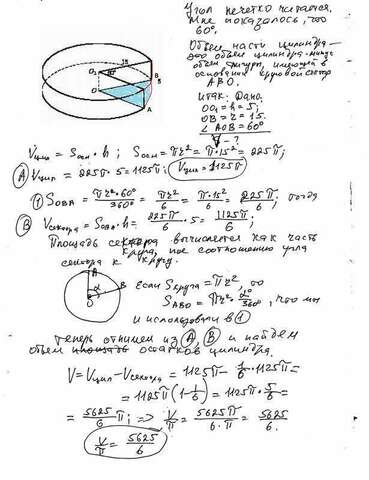 Угол нечетко читается,
мне показалось, что
60°.
Объем части цилиндра —
это объем цилиндра минус
объем фигуры, имеющей в
основании круговой сектор
АВО.
Итак: Дано:
OO₁ = h = 5;
OB = r = 15.
∠AOB = 60°
V/π - ?
O₁ 60° 15
O B 5
A
Vцил = Sосн · h; Sосн = πr² = π·15² = 225π;
(A) Vцил = 225π · 5 = 1125π; Vцил = 1125π
(1) SOBA = πr²·60°/360° = πr²/6 = π·15²/6 = 225π/6; тогда
(B) Vсектора = SOBA · h = 225π/6 · 5 = 1125π/6.
Площадь сектора вычисляется как часть
круга, по соотношению угла
сектора к кругу.
A
α B
O
если Sкруга = πr², то
SABO = πr² · α°/360°, что мы
и использовали в (1)
Теперь отнимем из (A) (B) и найдем
объем остатков цилиндра.
V = Vцил − Vсектора = 1125π − 1/6 · 1125π =
= 1125π(1 − 1/6) = 1125π · 5/6 =
= 5625/6 π; => V/π = 5625π/6·π = 5625/6.
V/π = 5625/6